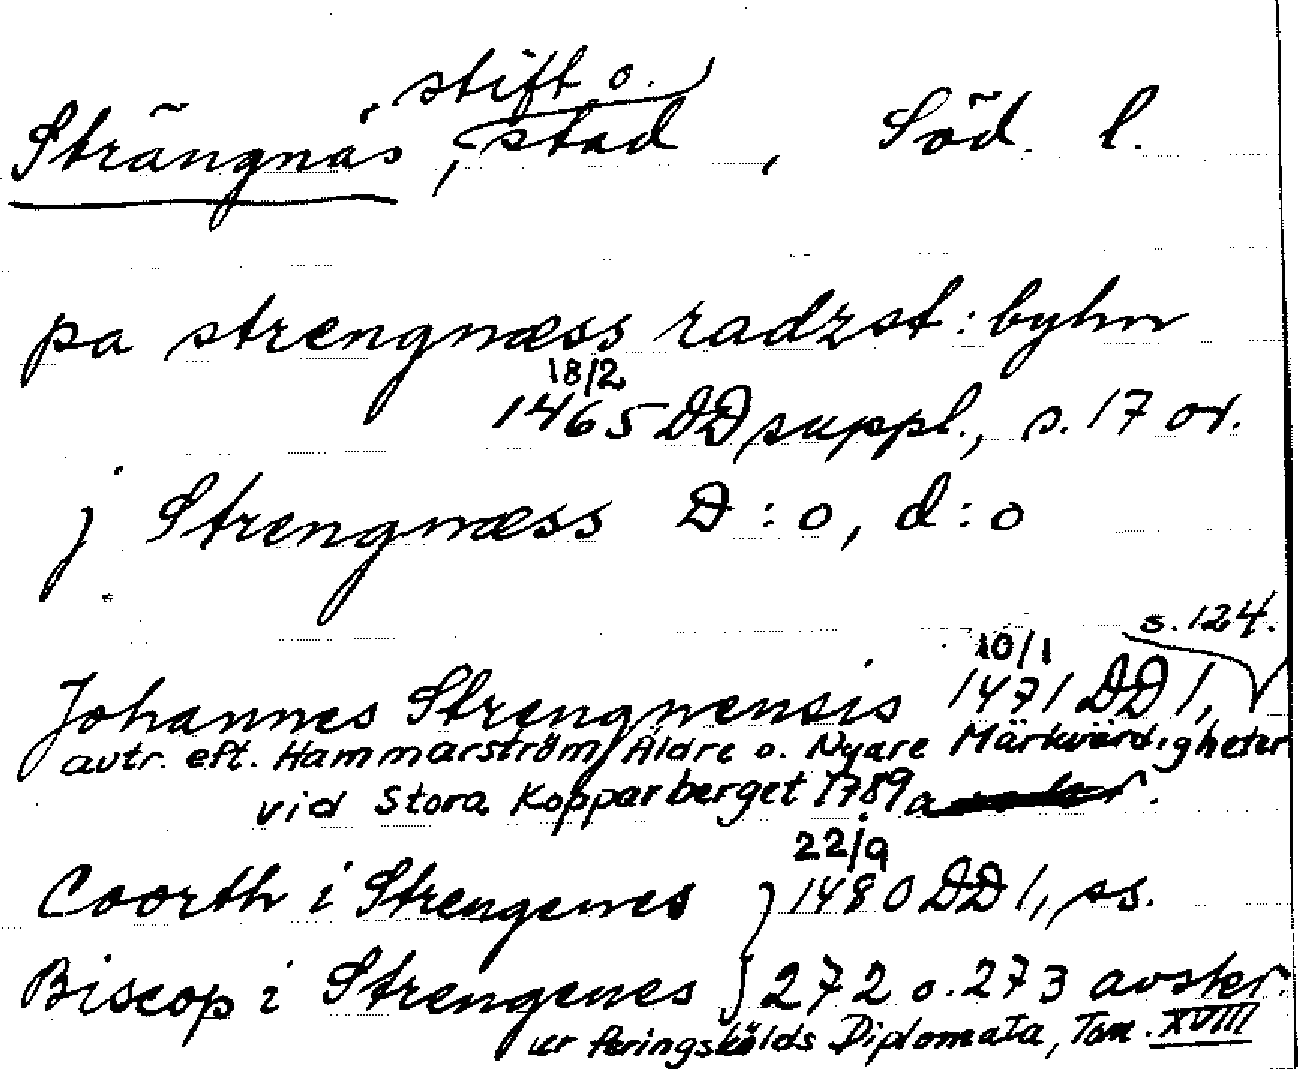 stift o.
Strängnäs, stad, Söd. l.
pa strengnæss radzst: byhn
18/2
1465 DD suppl., s. 17 or.
j Strengnæss D:o, d:o
s. 124.
10/1
Johannes Strengnensis 1471 DD 1,
avtr. eft. Hammarström, Äldre o. Nyare Märkvärdigheter
vid Stora Kopparberget 1789
22/9
Coorth i Strengenes } 1480 DD 1, ss.
Biscop i Strengenes } 272 o. 273 avskr.
ur Peringskölds Diplomata, Tom. XVIII